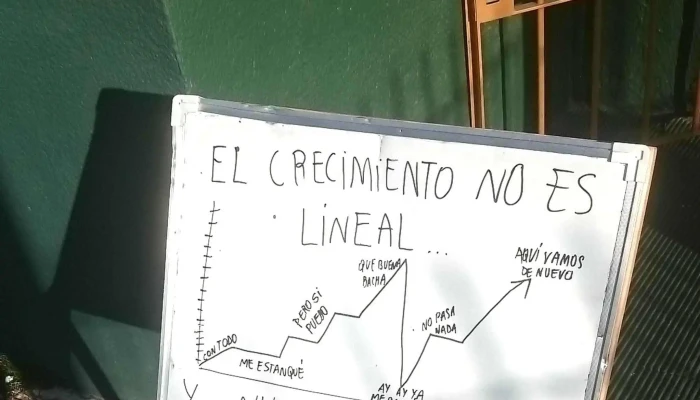 EL CRECIMIENTO NO ES
LINEAL...
CON TODO
ME ESTANQUÉ
PERO SI
PUEDO
QUE BUENA
RACHA
AY AY YA
NO PASA
NADA
AQUÍ VAMOS
DE NUEVO
Y